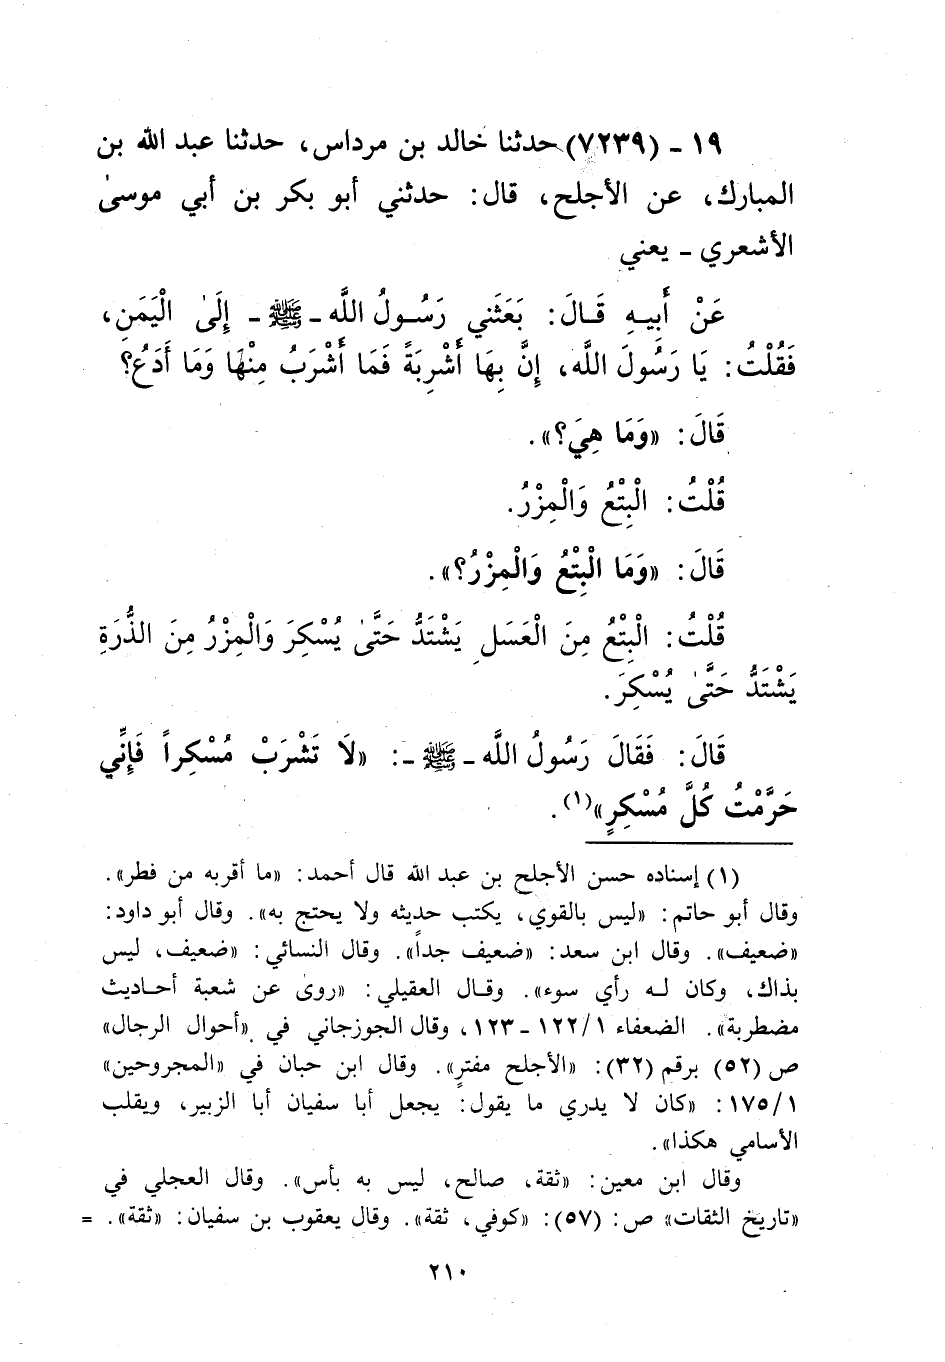 ١٩ - (٧٢٣٩) حدثنا خالد بن مرداس، حدثنا عبد الله بن
المبارك، عن الأجلح، قال: حدثني أبو بكر بن أبي موسىٰ
الأشعري - يعني
عَنْ أَبِيهِ قَالَ: بَعَثَني رَسُولُ اللَّه - ﷺ - إِلَىٰ الْيَمَنِ،
فَقُلْتُ: يَا رَسُولَ اللَّه، إِنَّ بِهَا أَشْرِبَةً فَمَا أَشْرَبُ مِنْهَا وَمَا أَدَعُ؟
قَالَ: «وَمَا هِيَ؟».
قُلْتُ: الْبِتْعُ وَالْمِزْرُ.
قَالَ: «وَمَا الْبِتْعُ وَالْمِزْرُ؟».
قُلْتُ: الْبِتْعُ مِنَ الْعَسَلِ يَشْتَدُّ حَتَّىٰ يُسْكِرَ وَالْمِزْرُ مِنَ الذُّرَةِ
يَشْتَدُّ حَتَّىٰ يُسْكِرَ.
قَالَ: فَقَالَ رَسُولُ اللَّه - ﷺ -: «لَا تَشْرَبْ مُسْكِراً فَإِنِّي
حَرَّمْتُ كُلَّ مُسْكِرٍ»(١).
(١) إسناده حسن الأجلح بن عبد الله قال أحمد: «ما أقربه من فطر».
وقال أبو حاتم: «ليس بالقوي، يكتب حديثه ولا يحتج به». وقال أبو داود:
«ضعيف». وقال ابن سعد: «ضعيف جداً». وقال النسائي: «ضعيف، ليس
بذاك، وكان له رأي سوء». وقال العقيلي: «روىٰ عن شعبة أحاديث
مضطربة». الضعفاء ١/١٢٢ - ١٢٣، وقال الجوزجاني في «أحوال الرجال»
ص (٥٢) برقم (٣٢): «الأجلح مفترٍ». وقال ابن حبان في «المجروحين»
١/١٧٥: «كان لا يدري ما يقول: يجعل أبا سفيان أبا الزبير، ويقلب
الأسامي هكذا».
وقال ابن معين: «ثقة، صالح، ليس به بأس». وقال العجلي في
«تاريخ الثقات» ص: (٥٧): «كوفي، ثقة». وقال يعقوب بن سفيان: «ثقة». =
٢١٠